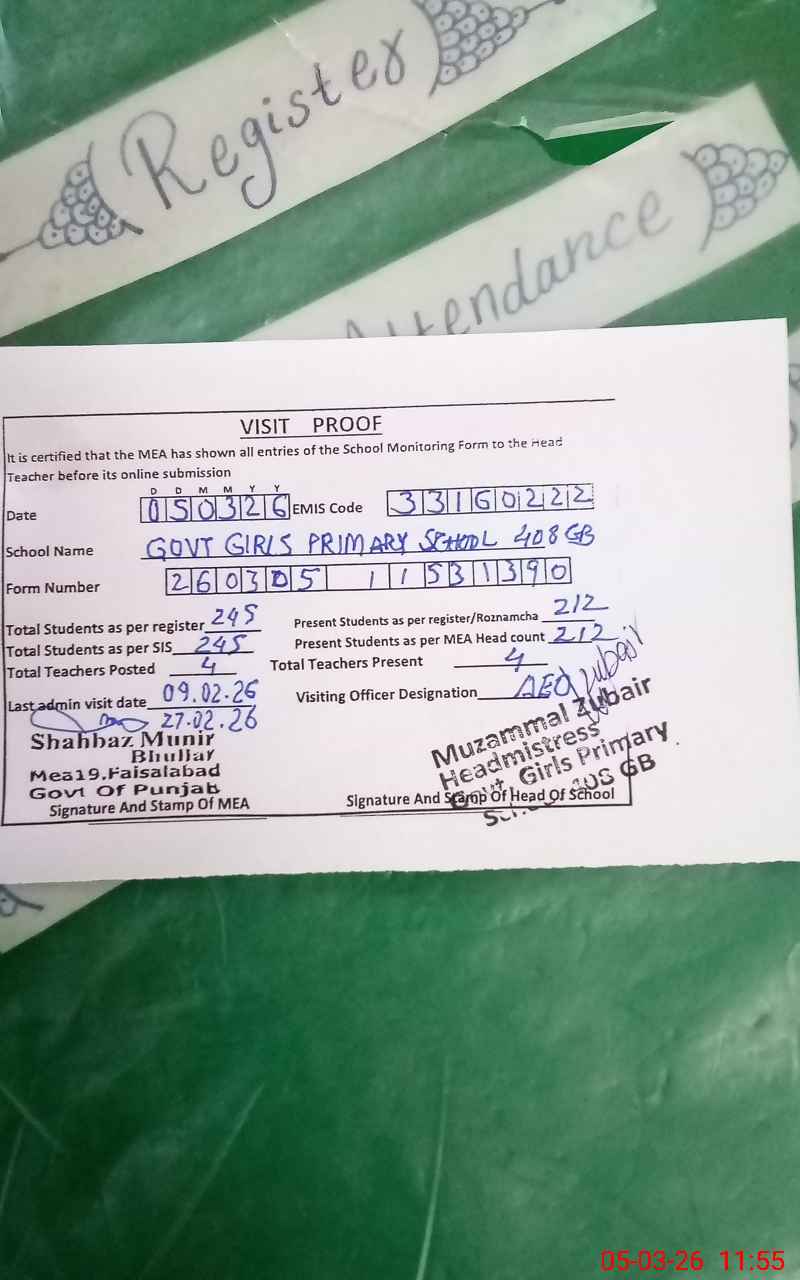 Register
Attendance
VISIT PROOF
It is certified that the MEA has shown all entries of the School Monitoring Form to the Head
Teacher before its online submission
D D M M Y Y
Date 050326 EMIS Code 33160222
School Name GOVT GIRLS PRIMARY SCHOOL 408 GB
Form Number 260305 11531390
Total Students as per register 245 Present Students as per register/Roznamcha 212
Total Students as per SIS 245 Present Students as per MEA Head count 212
Total Teachers Posted 4 Total Teachers Present 4
Last admin visit date 09.02.26 Visiting Officer Designation AEO
27.02.26
Zubair
Shahbaz Munir
Bhullar
Mea19.Faisalabad
Govt Of Punjab
Signature And Stamp Of MEA
Muzammal Zubair
Headmistress
Govt. Girls Primary
School 408 GB
Signature And Stamp Of Head Of School
05-03-26 11:55